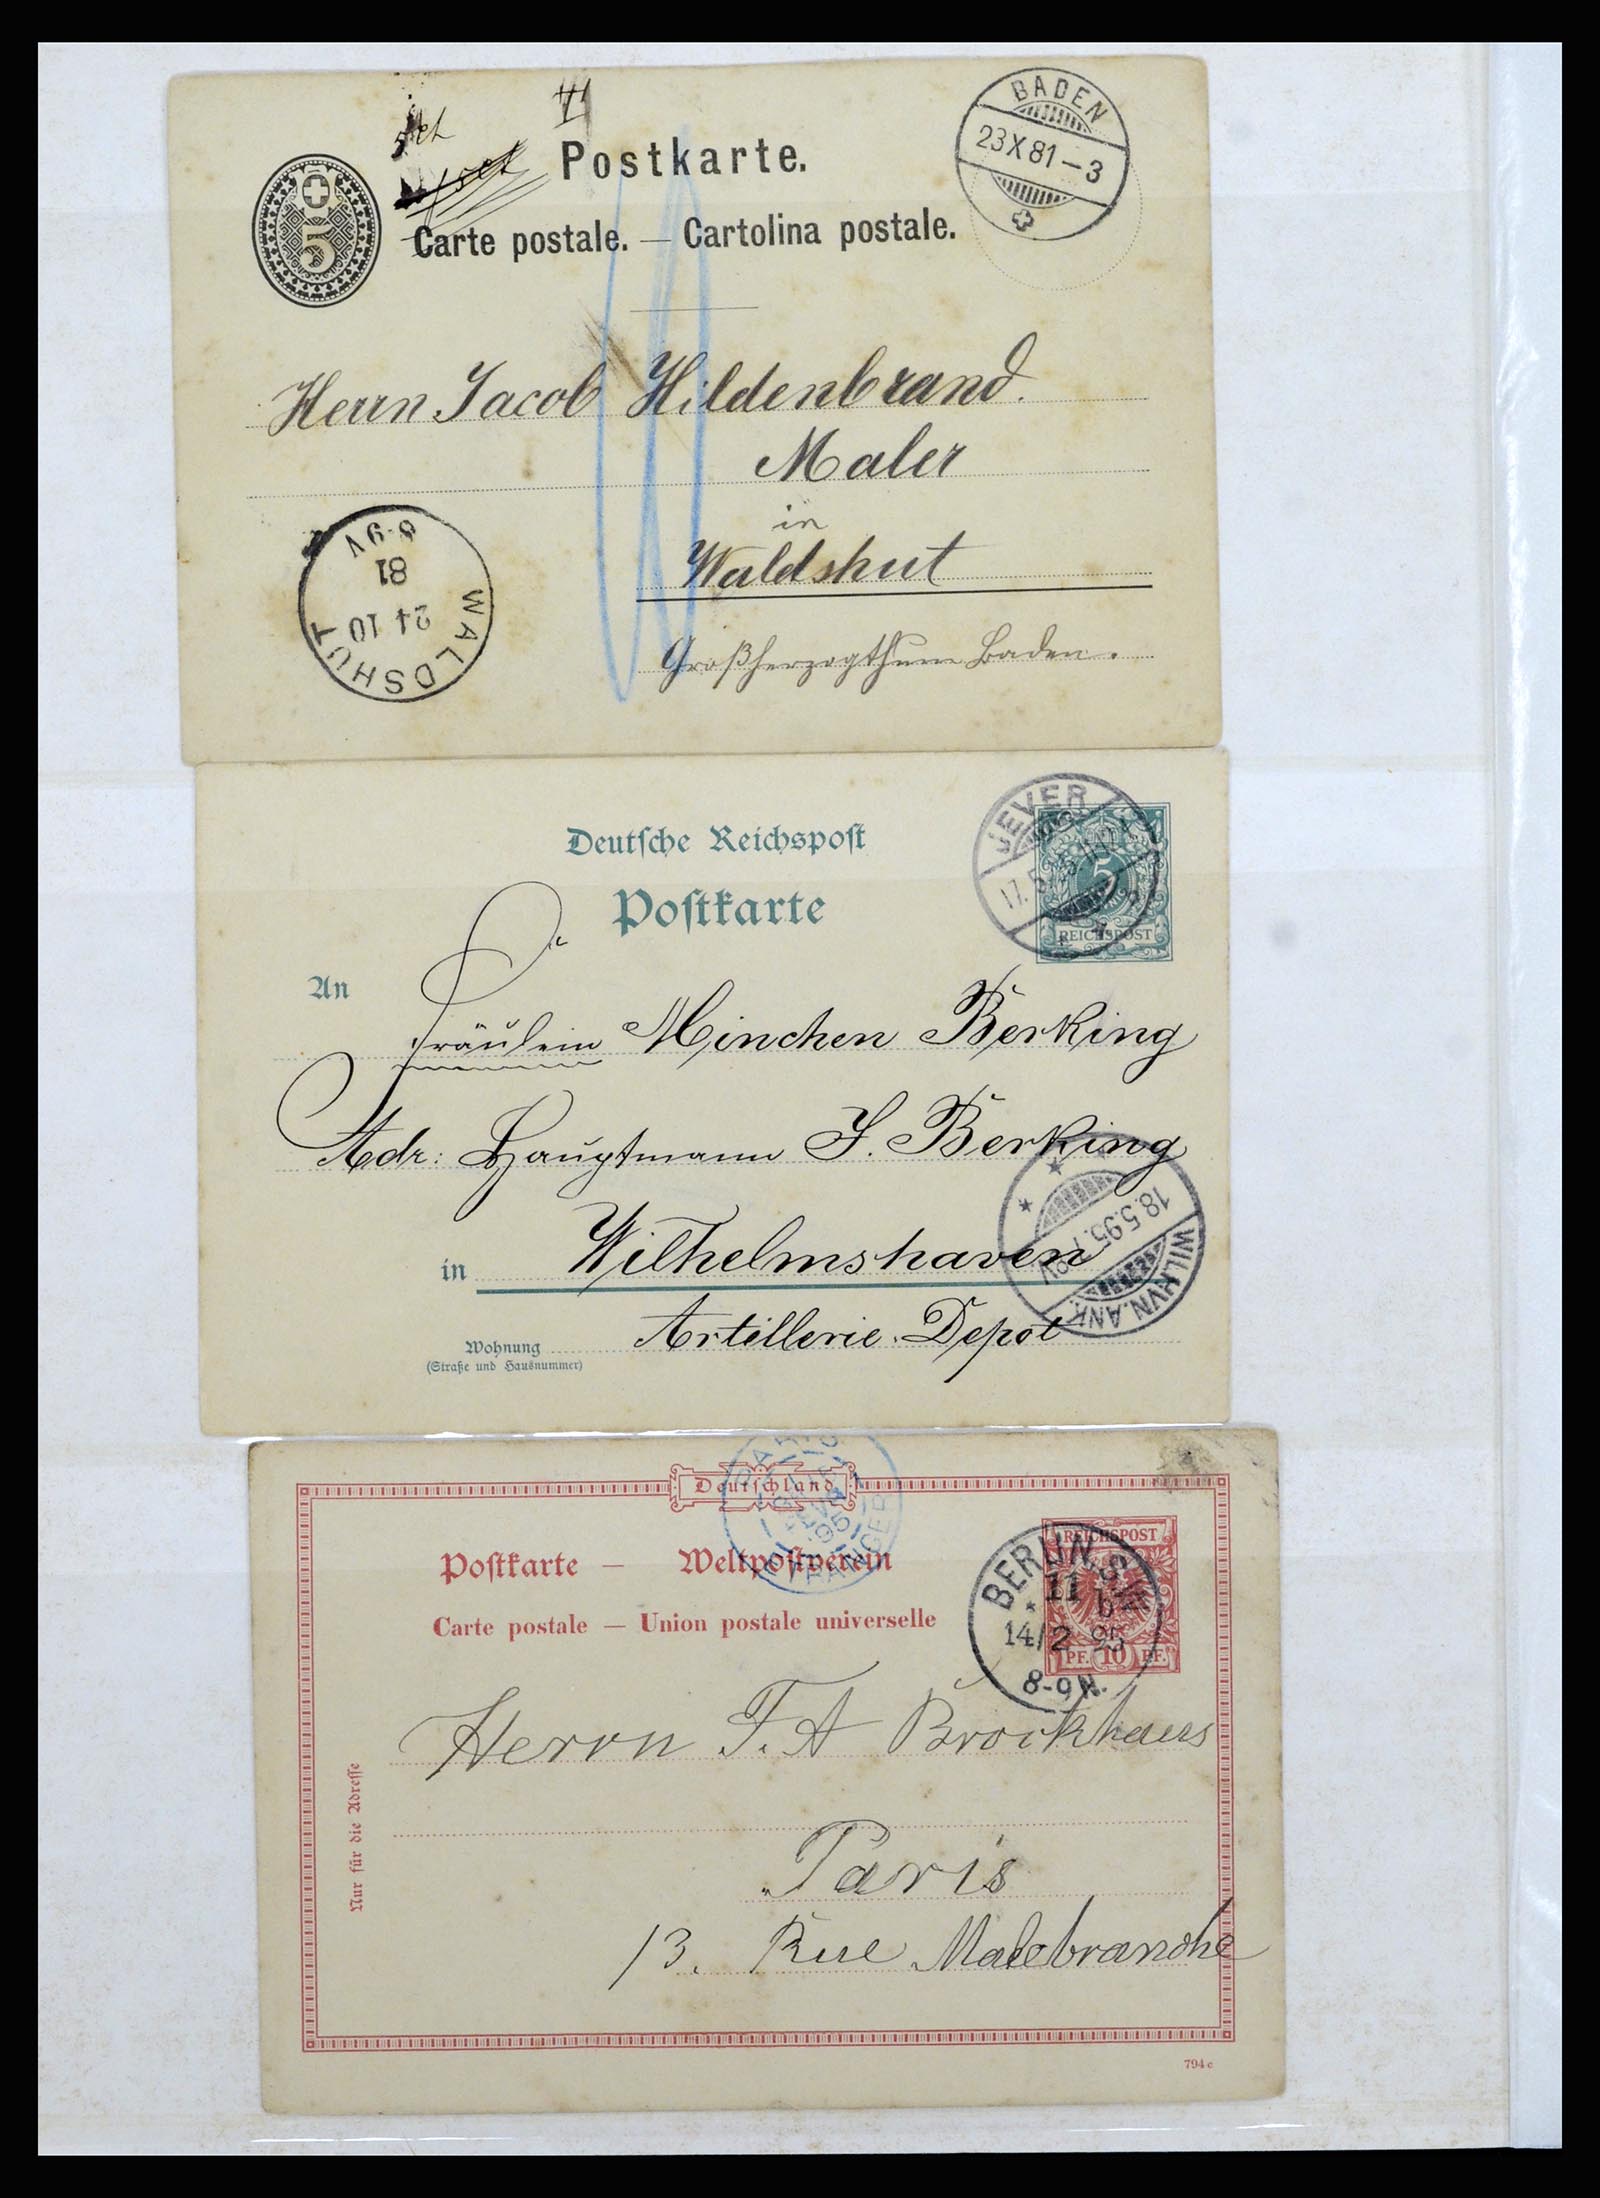 Postkarte.
Carte postale. — Cartolina postale.
5
BADEN
23 X 81 – 3
Herrn Jacob Hildenbrand.
Maler
in
Waldshut
Großherzogthum Baden.
WALDSHUT
24 10
81
8-9V
Deutsche Reichspost
Postkarte
JEVER
5
REICHSPOST
An
Fräulein Minchen Berking
Adr: Hauptmann J. Berking
in Wilhelmshaven
Artillerie-Depot
Wohnung
(Straße und Hausnummer)
WILHVN.ANK.
18.5.95. 7-8V
Deutschland
Postkarte — Weltpostverein
Carte postale — Union postale universelle
REICHSPOST
PF. 10 PF.
BERLIN. S.W.
* 11 b
14/2 95
8-9N.
Herrn F. A Brockhaus
Paris
13. Rue Malebranche
Nur für die Adresse
794 c